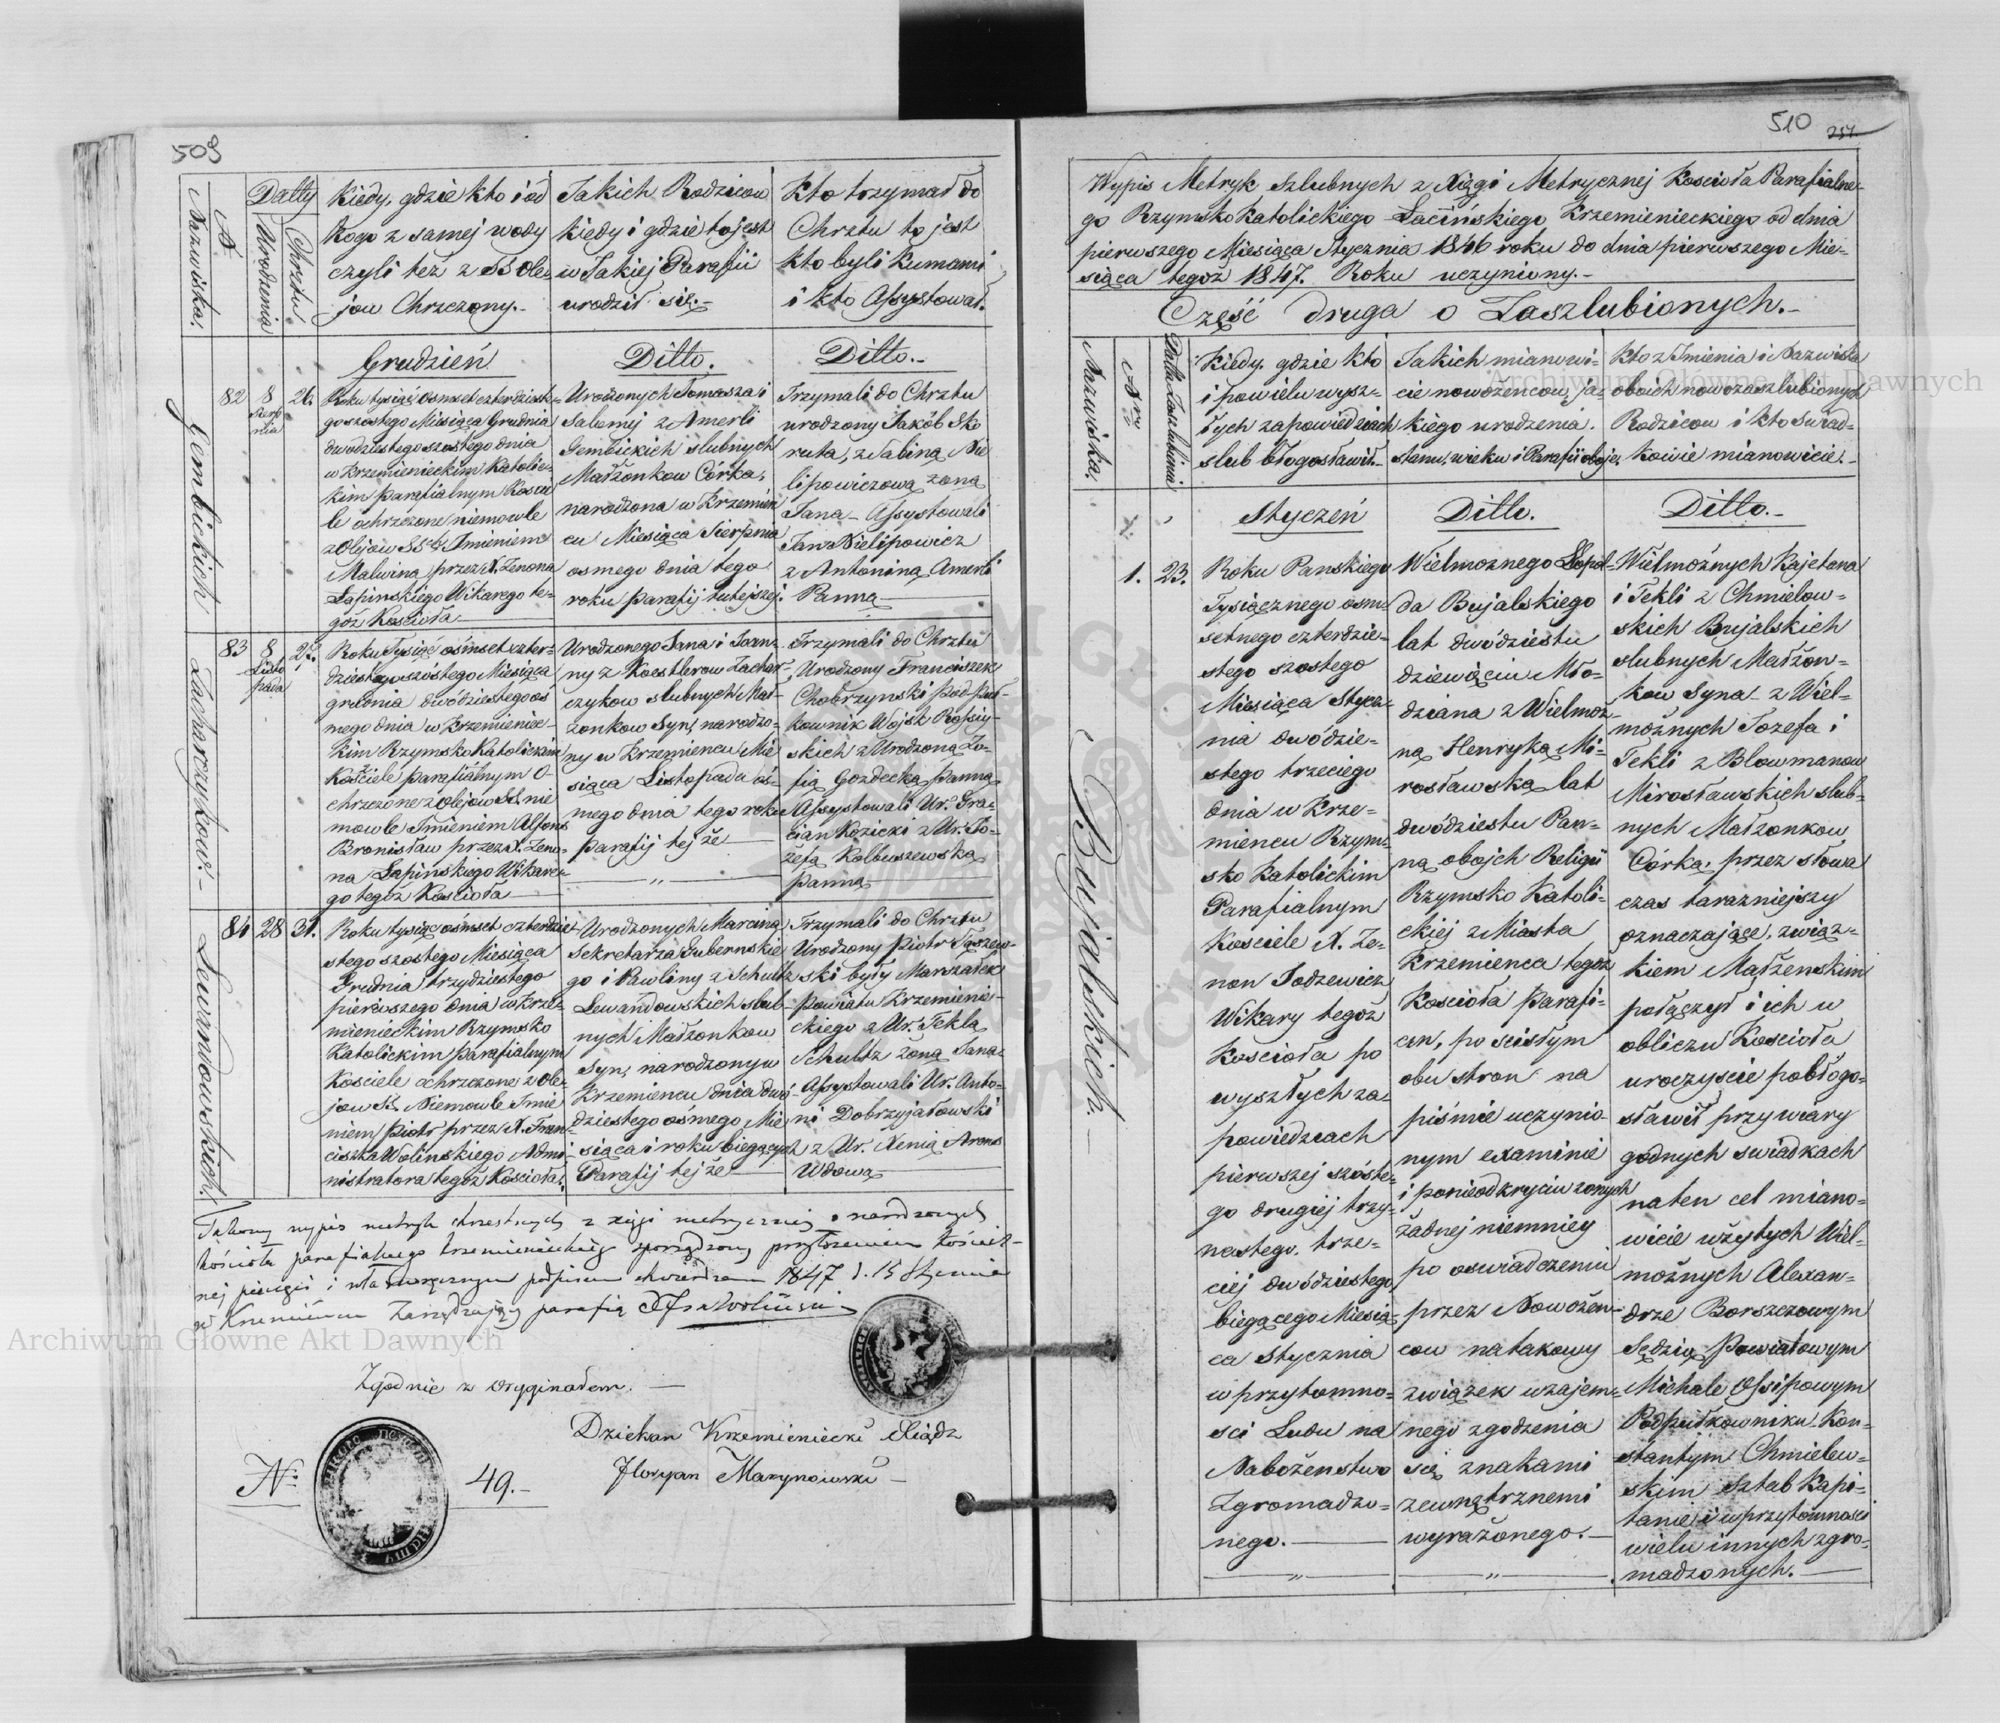 509
Nazwiska.
N
Datty
Urodzenia
Chrztu.
Kiedy, gdzie kto i od
kogo z samej wody
czyli też z SS Ole-
jow Chrzczony.-
Jakich Rodzicow
kiedy i gdzie to jest
w Jakiej Parafii
urodził się.-
Kto trzymał do
Chrztu to jest
kto byli Kumami
i kto Assystował.
Grudzień
Ditto.
Ditto.-
Gembickich
82
8 Sierpnia
26.
Roku tysiąć osmset czterdziest-
go szostego Miesiąca Grudnia
dwudziestego szostego dnia
w Krzemienieckim Katolic-
kim parafialnym Koscie
le ochrzczone niemowle
z Olejow SS Imieniem
Malwina, przez X. Zenona
Łapinskiego Wikarego te-
goż Kościoła
Urodzonych Tomasza i
Salomij z Amerli
Gembickich slubnych
Małżonkow Córka,
narodzona w Krzemień
cu Miesiąca Sierpnia
osmego dnia tego
roku parafij tutejszej.
Trzymali do Chrztu
urodzony Jakób Sko
ruta, z Sabiną Nie
lipowiczową żoną
Jana - Assystowali
Jan Nielipowicz
z Antoniną Amerli
Panną
Zacharczykow.-
83
8 Listopada
28.
Roku Tysiąć ośmset czter-
dziestego szóstego Miesiąca
grudnia dwódziestego os
mego dnia w Krzemieniec-
kim Rzymsko Katolickim
Kościele parafialnym o-
chrzczone z olejow SS. nie
mowle Imieniem Alfons
Bronisław przez X. Zeno-
na Łapinskiego Wikare-
go tegoż Kościoła
Urodzonego Jana i Joan-
ny z Koestlerow Zachar-
czykow slubnych Mał-
zonkow Syn, narodzo-
ny w Krzemiencu Mie
siąca Listopada ós-
mego dnia tego roku
parafij tej że
Trzymali do Chrztu
Urodzony Franciszek
Chobrzynski podpuł-
kownik Wojsk Rossiy-
skich z Urodzoną Zo-
fią Gozdecką panną
Assystowali Ur. Gra-
cian Kozicki z Ur. Jo-
żefą Kolbuszewską
panną
Lewandowskich.
84
28
31.
Roku tysiąc ośmset czterdzie-
stego szostego Miesiąca
Grudnia trzydziestego
pierwszego dnia w Krze-
mienieckim Rzymsko
Katolickim parafialnym
Kościele ochrzczone z ole-
jow SS. Niemowle Imie
niem Piotr przez X. Fran-
ciszka Wolinskiego Admi-
nistratora tegoż Kościoła.
Urodzonych Marcina
Sekretarza Gubernskie
go i Pawliny z Schultz
Lewandowskich slub-
nych Małżonkow
Syn, narodzony w
Krzemiencu dnia dwó-
dziestego ośmego Mie
siąca i roku biegących
Parafij tej że
Trzymali do Chrztu
Urodzony Piotr
ski były Marszałek
powiatu Krzemienie-
ckiego z Ur. Teklą
Schultz żoną Jana
Assystowali Ur. Anto-
ni Dobrzyjałowski
z Ur. Xenią Arons
Udową
Takowy wypis metryk chrzestnych z xięgi metrycznej o narodzonych
kościoła parafialnego krzemienieckiego sporządzony przyłożeniem kościel-
nej pieczęci i własnoręcznym podpisem stwierdzam 1847 r. 15 Stycznia
w Krzemieńcu Zarządzający parafią X Fr. Woliński
Zgodnie z oryginałem.-
Dziekan Krzemieniecki Xiądz
Floryan Marynowski-
N: 49.-
510
257
Wypis Metryk Szlubnych z Xięgi Metrycznej Kościoła Parafialne-
go Rzymsko Katolickiego Łacińskiego Krzemienieckiego od dnia
pierwszego Miesiąca Stycznia 1846 roku do dnia pierwszego Mie-
siąca tegoż 1847. Roku uczyniony.-
Część druga o Zaszlubionych.-
Nazwiska.
Nry
Datta Zaszlubienia
Kiedy, gdzie kto
i po wielu wysz-
łych zapowiedziach
slub błogosławił.-
Jakich mianowi-
cie nowożencow, ja-
kiego urodzenia.
stanu, wieku i Parafii oboje.
Kto z Imienia i Nazwiska
oboich nowozaszlubionych
Rodzicow i kto Swiad-
kowie mianowicie.-
Styczeń
Ditto.
Ditto.-
Bujalskich.-
1.
23.
Roku Panskiego
Tysiącznego osm-
setnego czterdzie-
stego szostego
Miesiąca Stycz-
nia dwódzie-
stego trzeciego
dnia w Krze-
miencu Rzym-
sko Katolickim
Parafialnym
Kosciele X. Ze-
non Jodzewicz
Wikary tegoż
Kościoła po
wyszłych za-
powiedziach
pierwszej szóste-
go drugiej trzy-
nastego. trze-
ciej dwódziestego
biegącego Miesią-
ca Stycznia
w przytomno-
sci Ludu na
Nabożenstwo
Zgromadzo-
nego.
Wielmoznego Leopol-
da Bujalskiego
lat dwódziestu
dziewięciu Mło-
dziana z Wielmoż-
ną Henryką Mi-
rosławską lat
dwódziestu Pan-
ną obojch Religii
Rzymsko Katoli-
ckiej z Miasta
Krzemienca tegoż
Kościoła parafi-
an, po scisłym
obu stron na
piśmie uczynio-
nym examinie
i po nieodkryciu zonych
żadnej niemniey
po oswiadczeniu
przez Nowożen-
cow na takowy
związek wzajem-
nego zgodzenia
się znakami
zewnętrznemi
wyrażonego.-
Wielmożnych Kajetana
i Tekli z Chmielow-
skich Bujalskich
slubnych Małżon-
kow Syna - z Wiel-
możnych Jozefa i
Tekli z Blowmanow
Mirosławskich slub-
nych Małzonkow
Córką, przez słowa
czas tarazniejszy
oznaczające, związ-
kiem Małżenskim
połączył i ich w
obliczu Kościoła
uroczyscie pobłogo-
sławił przy wiary
godnych swiadkach
na ten cel miano-
wicie użytych Wiel-
możnych Alexan-
drze Borszczowym
Sędzią Powiatowym
Michale Ossipowym
Podpułkowniku. Kon-
stantym Chmielew-
skim Sztab Kapi-
tanie i w przytomnosci
wielu innych zgro-
madzonych.-
Archiwum Główne Akt Dawnych
Archiwum Główne Akt Dawnych